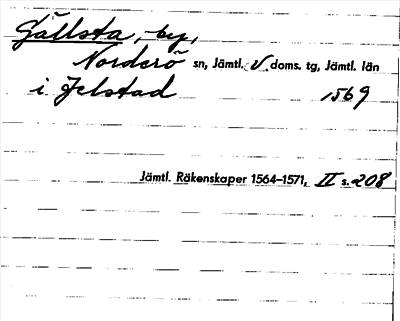 Gällsta, -by,
Norderö sn, Jämtl. v. doms. tg, Jämtl. län
i Jelstad 1569
Jämtl. Räkenskaper 1564–1571, II s. 208